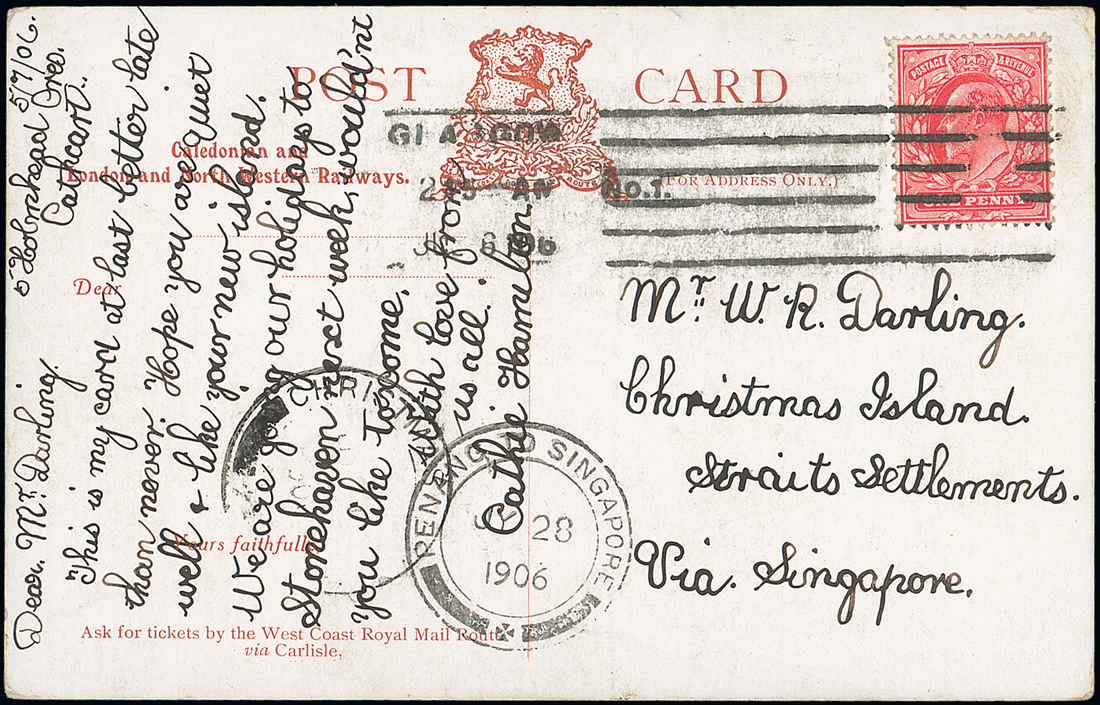 POST CARD
Caledonian and
London and North Western Railways.
(FOR ADDRESS ONLY.)
Dear
Yours faithfully,
Ask for tickets by the West Coast Royal Mail Route
via Carlisle.
POSTAGE & REVENUE
PENNY
GLASGOW
No.1.
6 190
Mr. W. R. Darling.
Christmas Island.
Straits Settlements.
Via. Singapore.
5/7/06.
Cathcart.
Dear. Mr. Darling.
This is my card at last better late
than never. Hope you are quiet
well & like your new island.
We are going our holidays to
Stonehaven next week, would'nt
you like to come,
with love from
us all.
Cathie Hamilton.
CHRISTM
PENANG TO SINGAPORE
28
1906